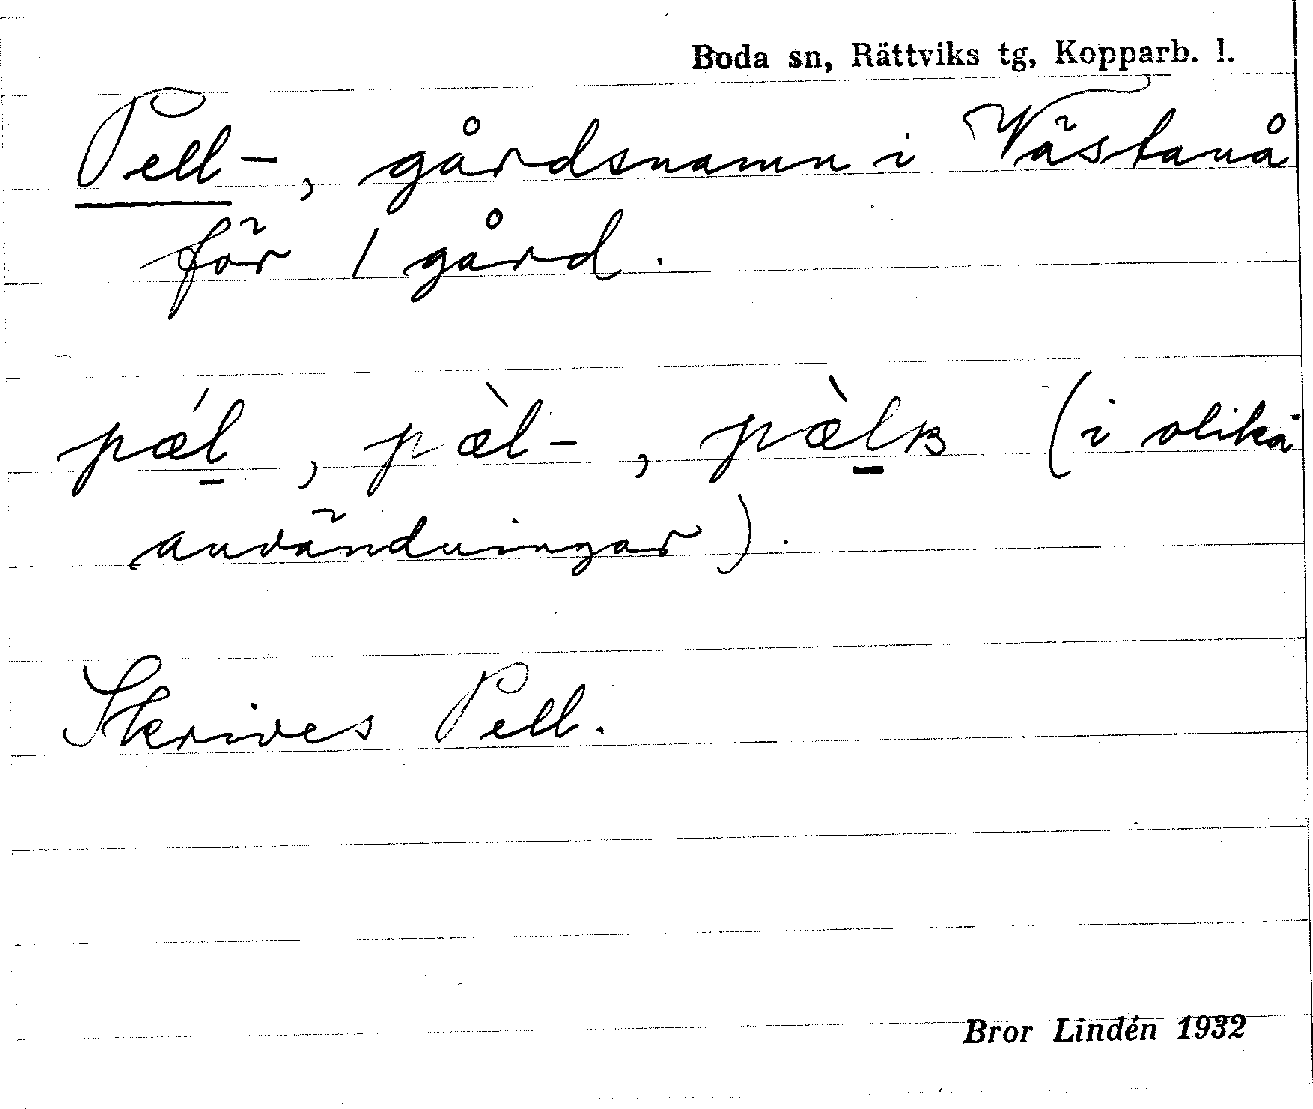 Boda sn, Rättviks tg, Kopparb. l.
Pell-, gårdsnamn i Västanå
för 1 gård.
pǽl̠, pæ̀l-, pæ̀l̠ʙ (i olika
användningar).
Skrives Pell.
Bror Lindén 1932